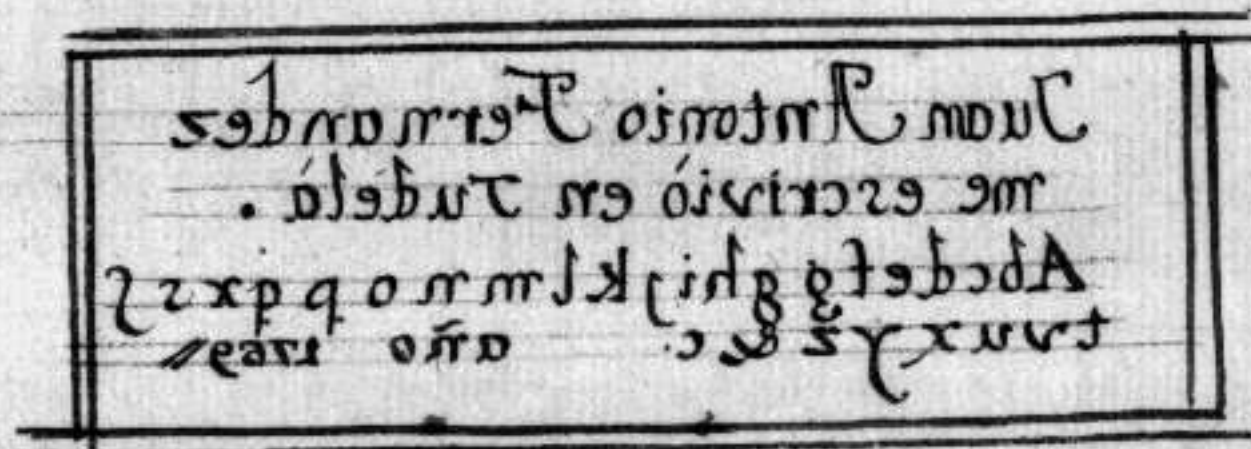 Juan Antonio Fernandez
me escrivió en Tudela.
Abcdefgghijklmnopqxrsſ
tvuxyz &c. año